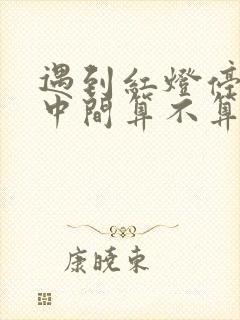 遇到紅燈停
中間算不算
康曉東